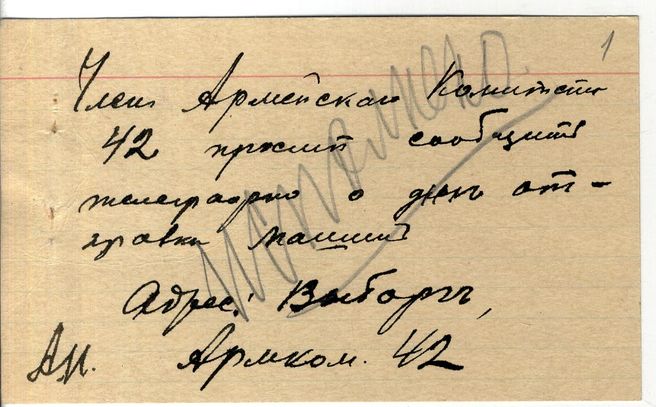 1
Член Армейскаго Комитета
42 просит сообщить
телеграфно о днѣ от-
правки машинъ
Адрес: Выборгъ,
Армком. 42
А.И.
Исполнено.